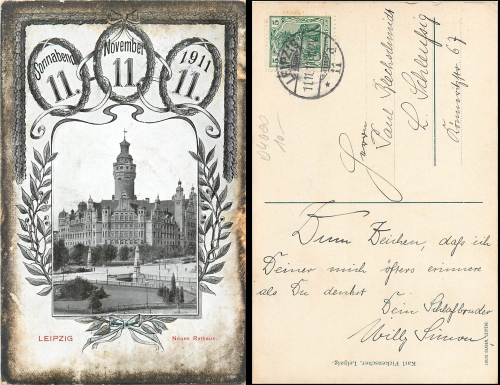 Sonnabend
November
1911
11.
11
11.
LEIPZIG
Neues Rathaus.
5
LEIPZIG
11.11
11
Herrn
Paul Blechschmidt
L. Schleußig
Könneritzstr. 67
Zum Zeichen, daß ich
Deiner mich öfters erinnere
als Du denkst
Dein Schlafbruder
Willy Simon
Karl Pickenseher, Leipzig.